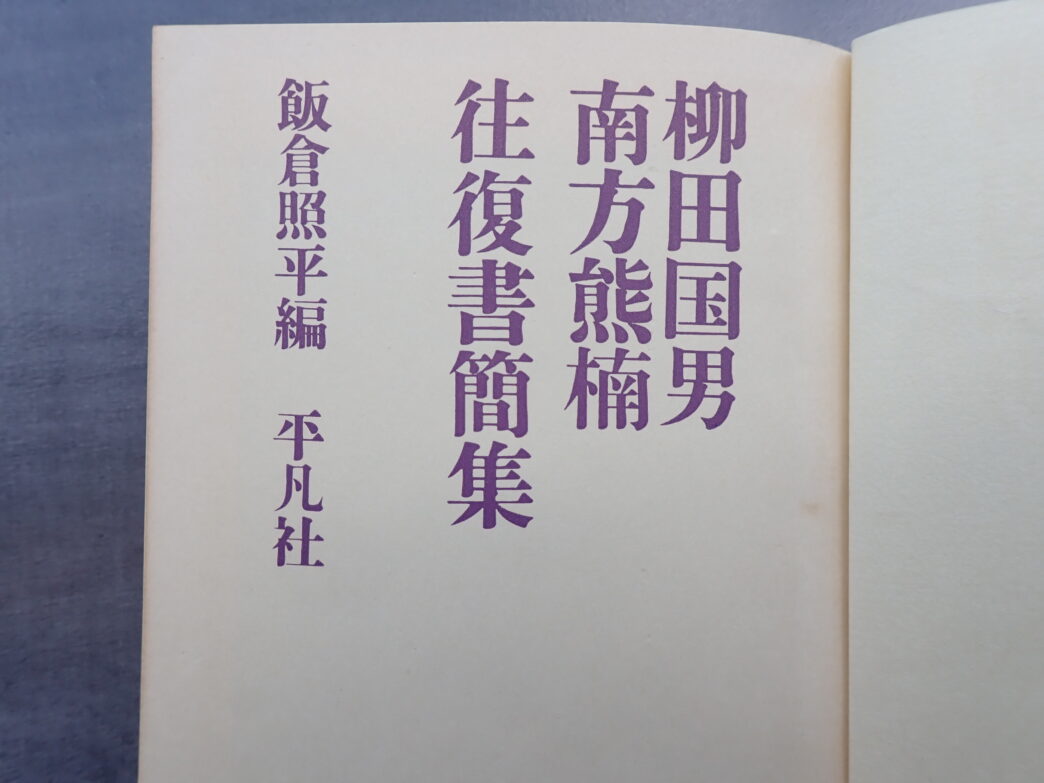 柳田国男
南方熊楠
往復書簡集
飯倉照平編 平凡社